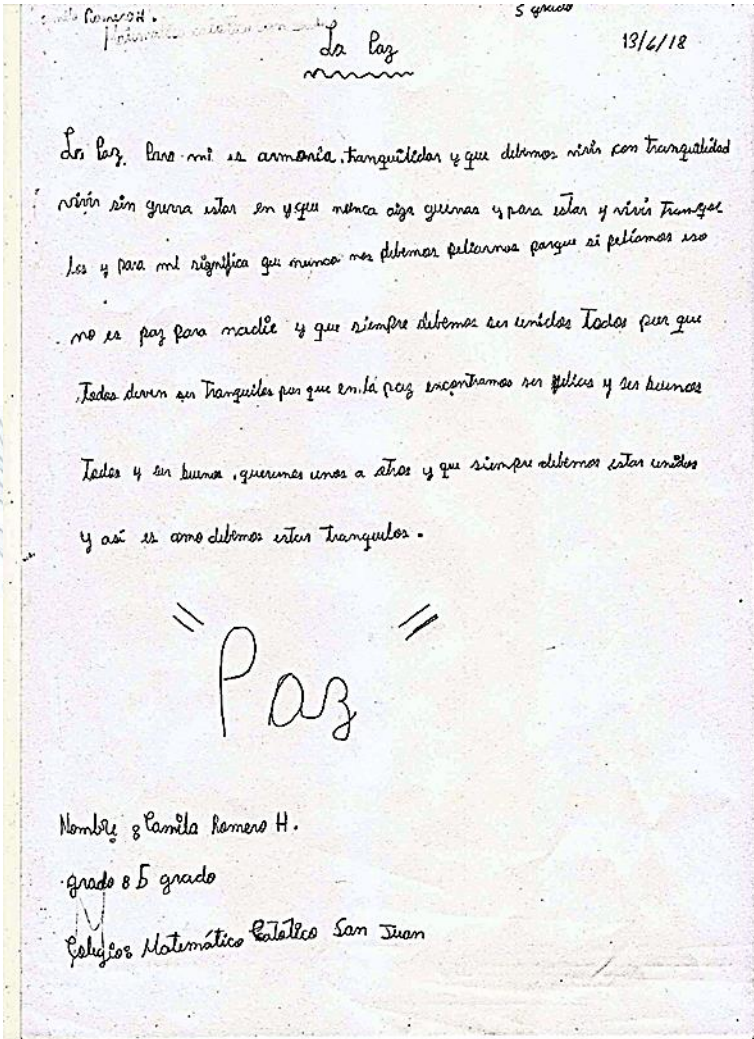 Romero H. 5 grado
La Paz 13/6/18
La Paz Para mi es armonía, tranquilidar y que debemos vivir con tranquilidad
vivir sin gurra estar en y que nunca aiga guerras y para estar y vivir Tranqui
los y para mi significa que nunca nos debemos peliarnos porque si peliamos eso
no es paz para nadie y que siempre debemos ser unidos Todos por que
Todos deven ser Tranquilos por que en la paz encontramos ser felices y ser buenos
Todos y ser buenos, querernos unos a otros y que siempre debemos estar unidos
y así es como debemos estar tranquilos.
"Paz"
Nombre : Camila Romero H.
grado : 5 grado
Colegio : Matemático Católico San Juan